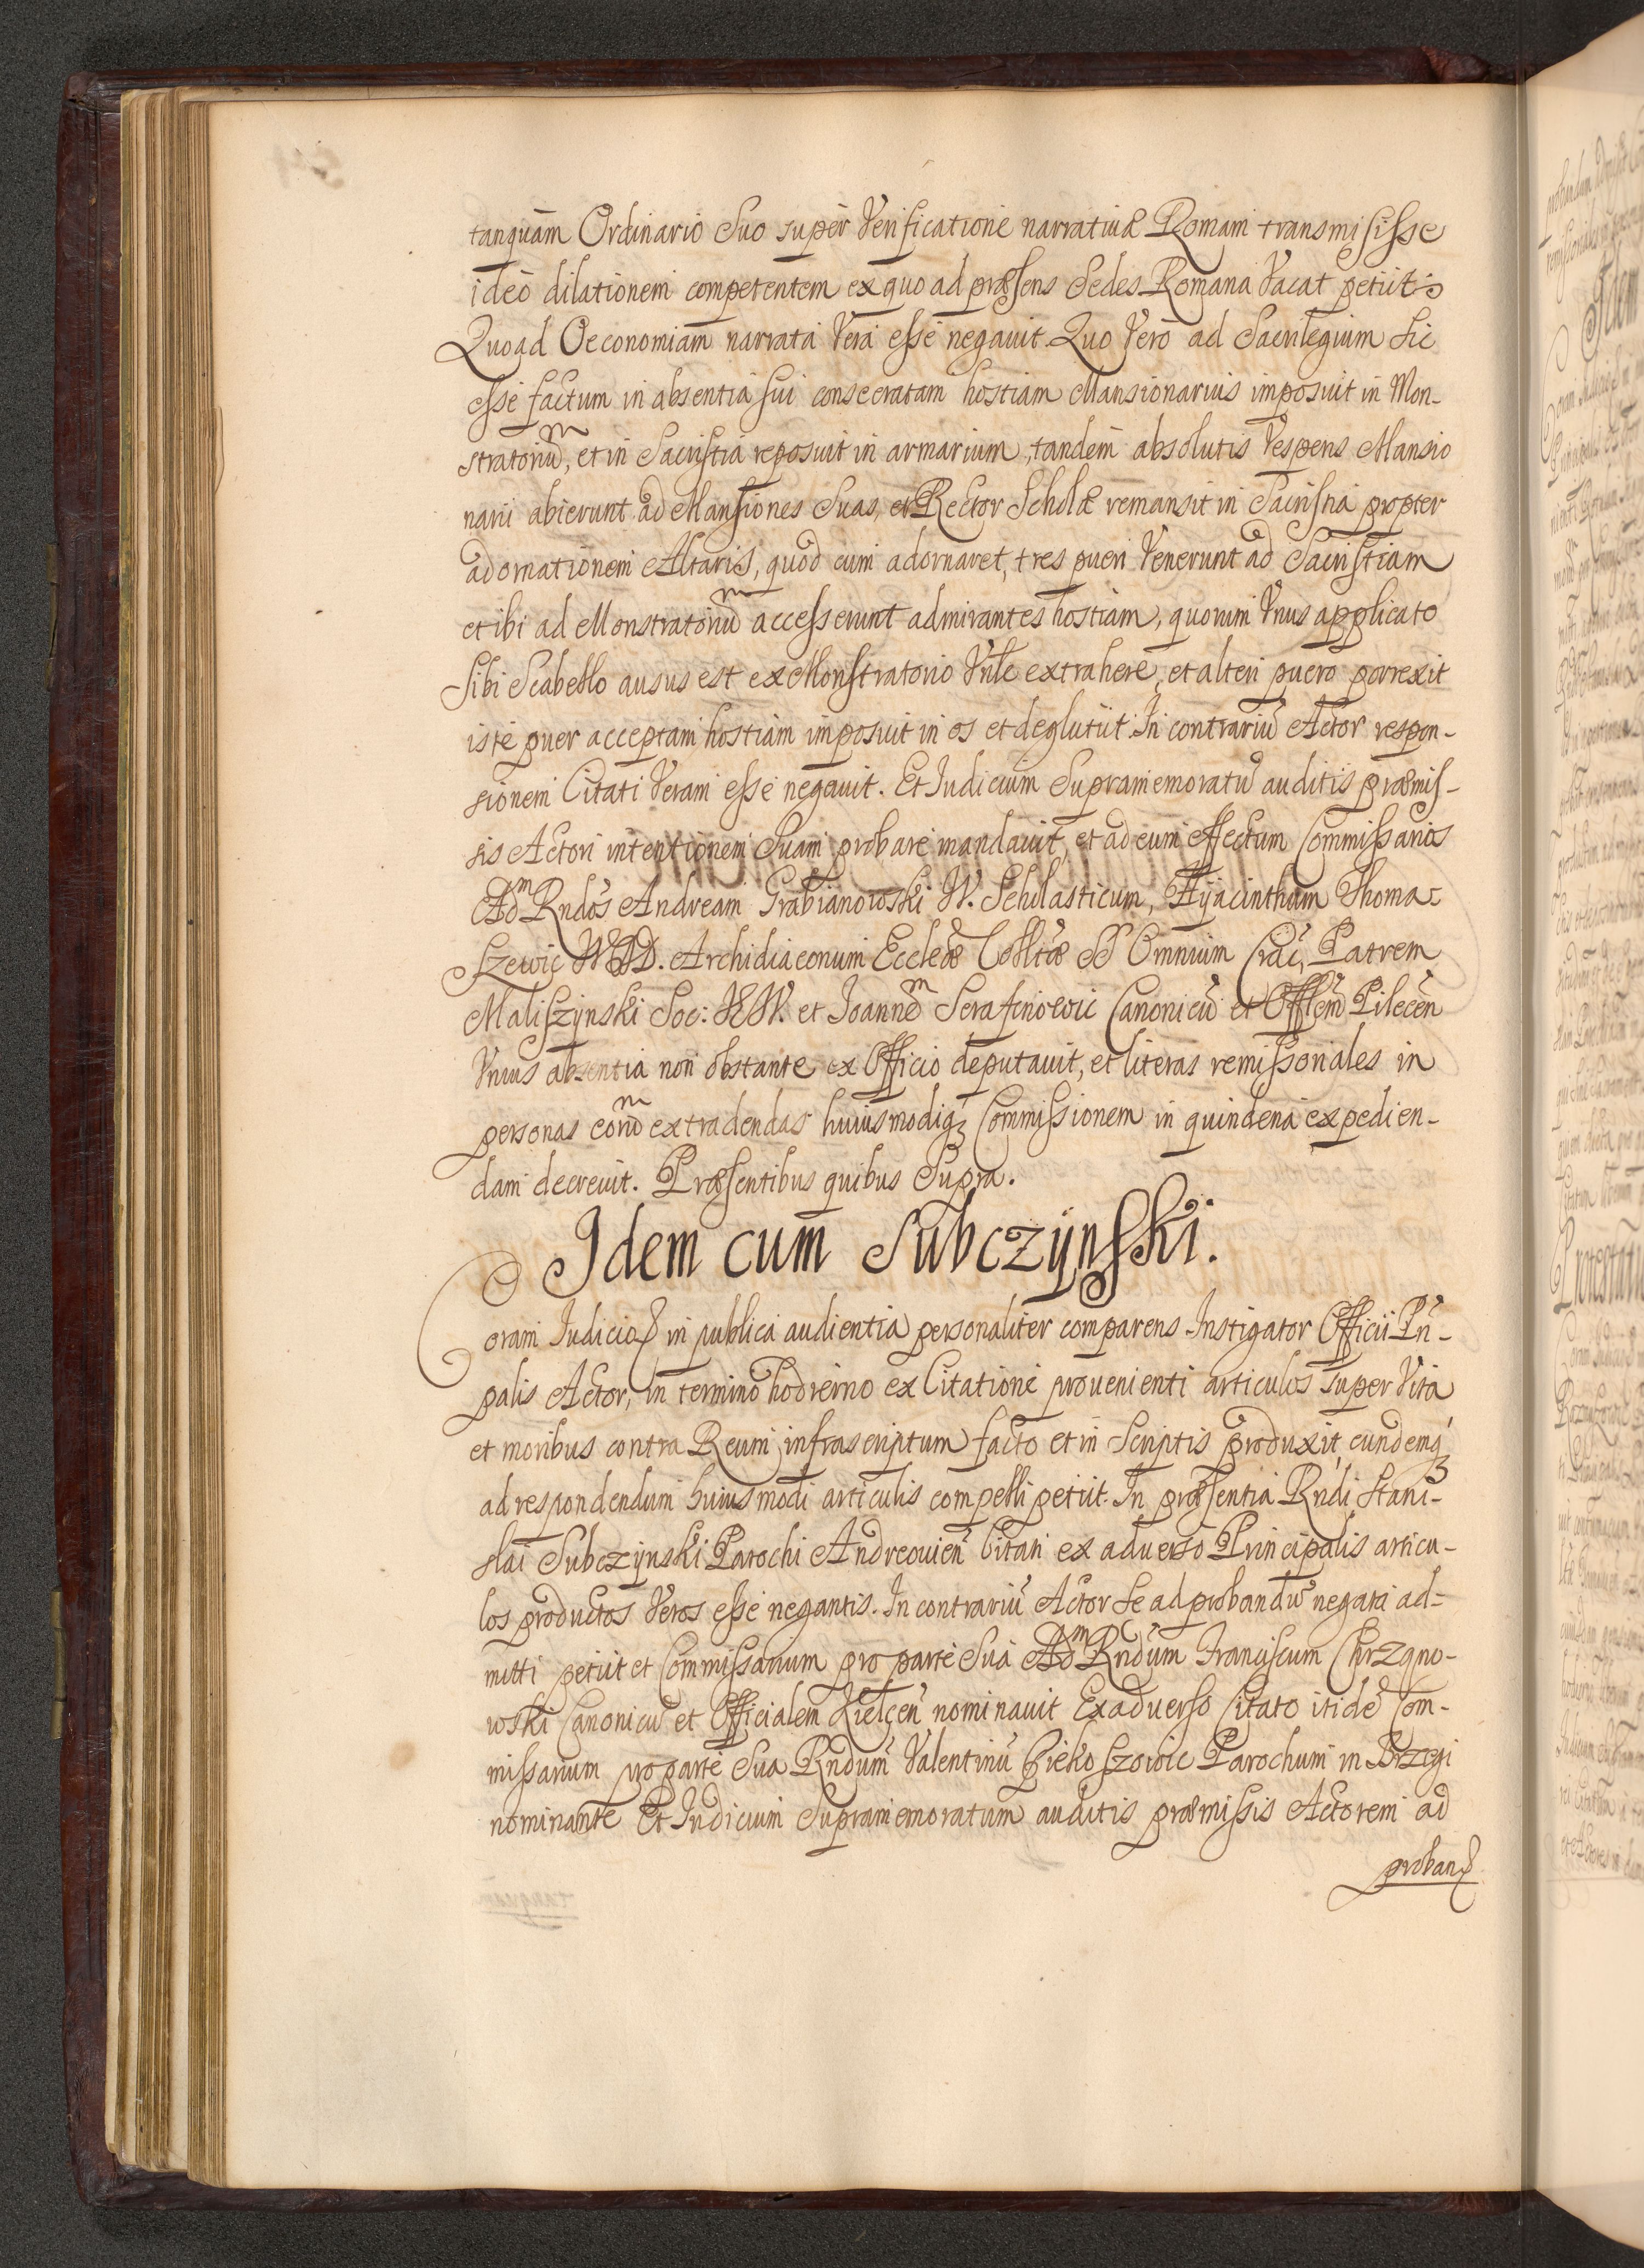 tanquam Ordinario Suo super Verificatione narrativa Romam transmisisse
ideo dilationem competentem ex quo ad præsens Sedes Romana Vacat petiit
Quoad Oeconomiam narrata Vera esse negavit. Quo Vero ad Sacrilegium Sic
esse factum in absentia sui consecratam hostiam Mansionarius imposuit in Mon-
stratoriũ, et in Sacristia reposuit in armarium, tandem absolutis Vesperis Mansio
narii abierunt ad Mansiones Suas, et Rector Scholæ remansit in Sacristia propter
adornationem Altaris, quod cum adornaret, tres pueri Venerunt ad Sacristiam
et ibi ad Monstratoriũ accesserunt admirantes hostiam, quorum Vnus applicato
Sibi Scabello ausus est ex Monstratorio Vnle extrahere, et alteri puero porrexit
iste puer acceptam hostiam imposuit in os et deglutiit. In contrariũ Actor respon-
sionem Citati Veram esse negavit. Et Iudicium Supramemoratũ auditis præmis-
sis Actori intentionem Suam probare mandavit, et ad eum effectum Commissarios
Adm Rndos Andream Grabianowski W. Scholasticum, Hyacinthum Thoma-
szewic WDD. Archidiaconum Eccleæ Colltæ SS Omnium Crac, Patrem
Maliszynski Soc: et Ioannẽ Serafinowic Canonicũ et Offlem Pilecen
Vnius absentia non obstante ex Officio deputavit, et literas remissoriales in
personas eorũ extradendas huiusmodiq3 Commissionem in quindena expedien-
dam decrevit. Præsentibus quibus Supra.
Idem cum Subczynski.
Coram Iudicio in publica audientia personaliter comparens Instigator Officii Prin-
palis Actor, in termino hodierno ex Citatione provenienti articulos super Vita
et moribus contra Reum infrascriptum facto et in Scriptis produxit, eundemq3
ad respondendum huiusmodi articulis compelli petiit. In præsentia Rndi Stani-
slai Subczynski Parochi Andreovien Citati ex adverso Principalis articu-
los productos Veros esse negantis. In contrariũ Actor Se ad probandũ negata ad-
mitti petiit et Commissarium pro parte Sua Adm Rndum Franciscum Chrzano-
wski Canonicũ et Officialem Kielcen nominavit Ex adverso Citato itidẽ Com-
missarium pro parte Sua Rndum Valentinũ Piekoszowic Parochum in Brzegi
nominante Et Iudicium Supramemoratum auditis præmissis Actorem ad
proban